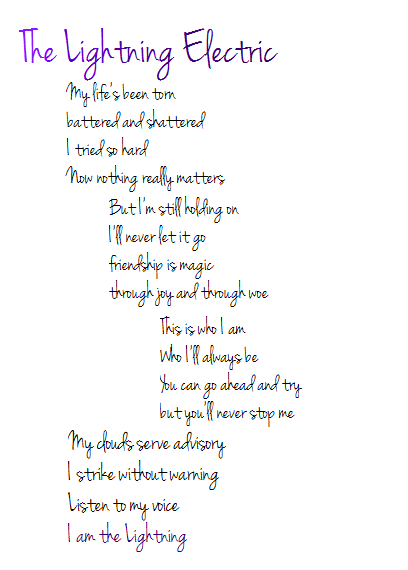 The Lightning Electric
My life's been torn
battered and shattered
I tried so hard
Now nothing really matters
But I'm still holding on
I'll never let it go
friendship is magic
through joy and through woe
This is who I am
Who I'll always be
You can go ahead and try
but you'll never stop me
My clouds serve advisory
I strike without warning
Listen to my voice
I am the Lightning